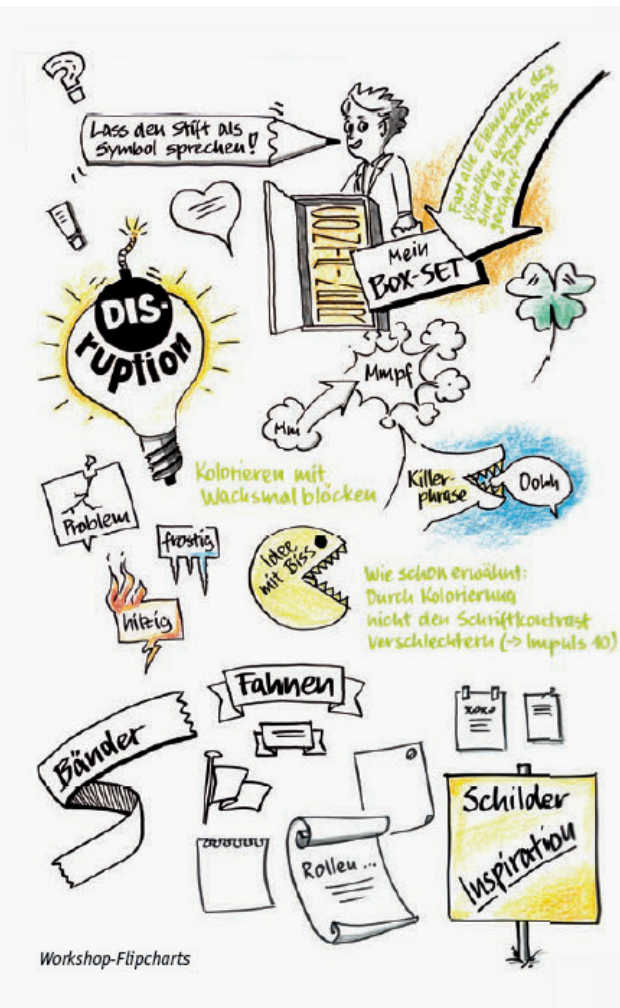 Lass den Stift als
Symbol sprechen!
Fast alle Elemente des
visuellen Wortschatzes
sind als Text-Box
geeignet
Mein
BOX-SET
DIS-
ruption
Mmpf
Mm
Kolorieren mit
Wachsmalblöcken
Killer-
phrase
Oohh
Problem
frostig
Idee
mit Biss
hitzig
Wie schon erwähnt:
Durch Kolorierung
nicht den Schriftkontrast
verschlechtern (→ Impuls 10)
Fahnen
Bänder
xoxo
Schilder
Inspiration
Rollen ...
Workshop-Flipcharts